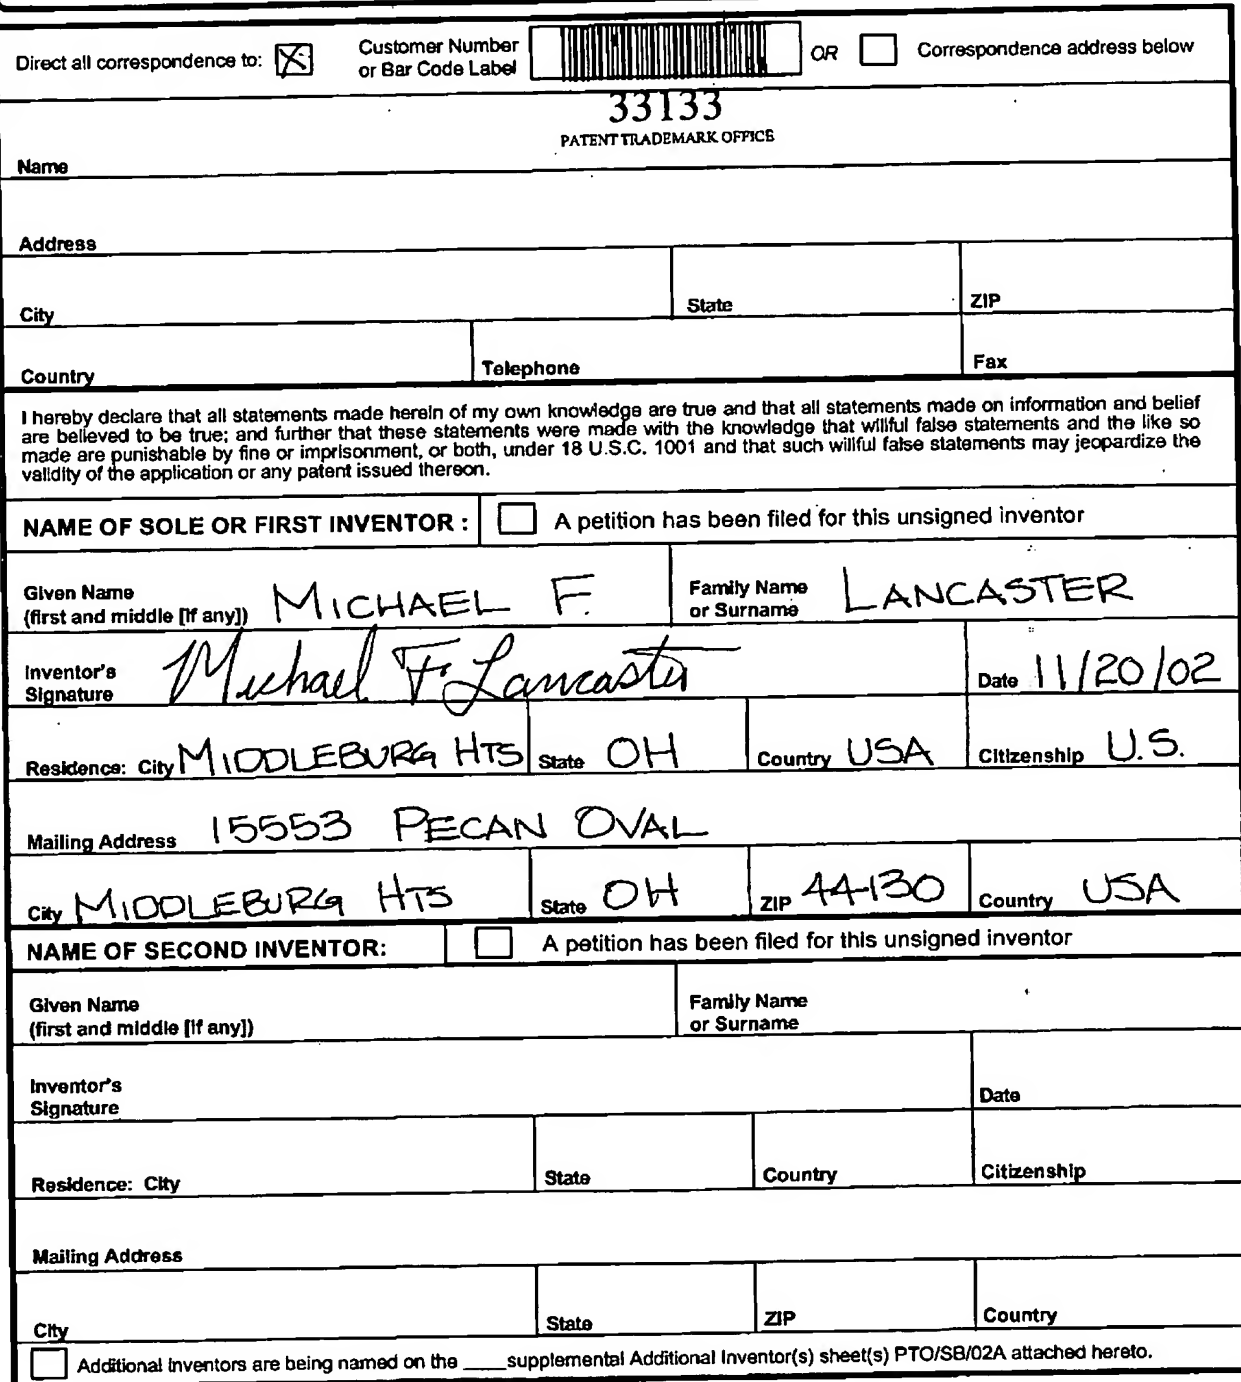 Direct all correspondence to: Customer Number or Bar Code Label OR Correspondence address below
33133
PATENT TRADEMARK OFFICE
Name
Address
City State ZIP
Country Telephone Fax
I hereby declare that all statements made herein of my own knowledge are true and that all statements made on information and belief
are believed to be true; and further that these statements were made with the knowledge that willful false statements and the like so
made are punishable by fine or imprisonment, or both, under 18 U.S.C. 1001 and that such willful false statements may jeopardize the
validity of the application or any patent issued thereon.
NAME OF SOLE OR FIRST INVENTOR : A petition has been filed for this unsigned inventor
Given Name (first and middle [if any]) MICHAEL F. Family Name or Surname LANCASTER
Inventor's Signature Michael F. Lancaster Date 11/20/02
Residence: City MIDDLEBURG HTS State OH Country USA Citizenship U.S.
Mailing Address 15553 PECAN OVAL
City MIDDLEBURG HTS State OH ZIP 44130 Country USA
NAME OF SECOND INVENTOR: A petition has been filed for this unsigned inventor
Given Name (first and middle [if any]) Family Name or Surname
Inventor's Signature Date
Residence: City State Country Citizenship
Mailing Address
City State ZIP Country
Additional inventors are being named on the ____ supplemental Additional Inventor(s) sheet(s) PTO/SB/02A attached hereto.